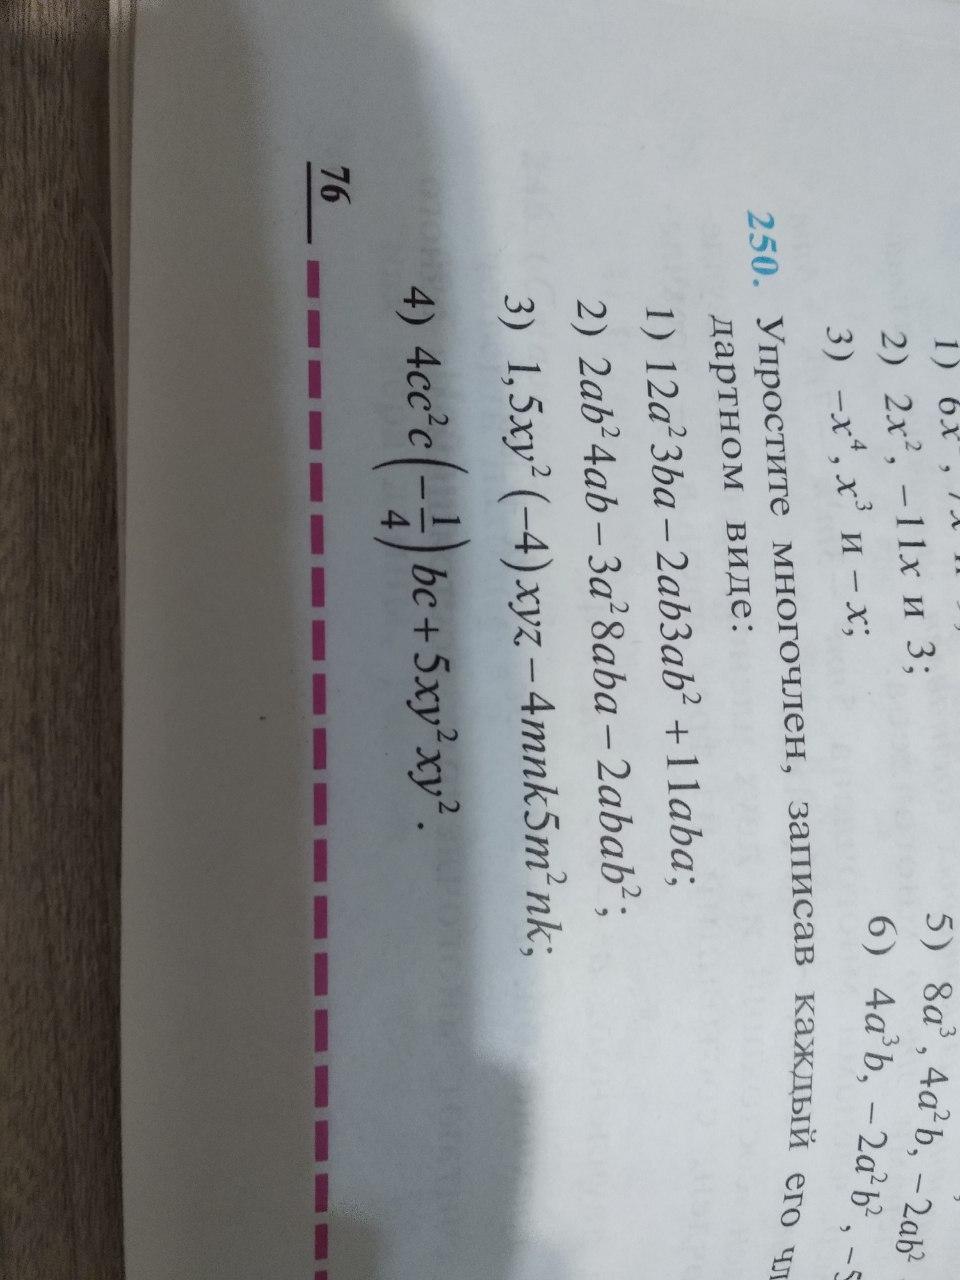 1) 6x
2) 2x², −11x и 3;
3) −x⁴, x³ и −x;
5) 8a³, 4a²b, −2ab²
6) 4a³b, −2a²b²,
250. Упростите многочлен, записав каждый его
дартном виде:
1) 12a²3ba − 2ab3ab² + 11aba;
2) 2ab²4ab − 3a²8aba − 2abab²;
3) 1,5xy²(−4)xyz − 4mnk5m²nk;
4) 4cc²c(−1/4)bc + 5xy²xy².
76